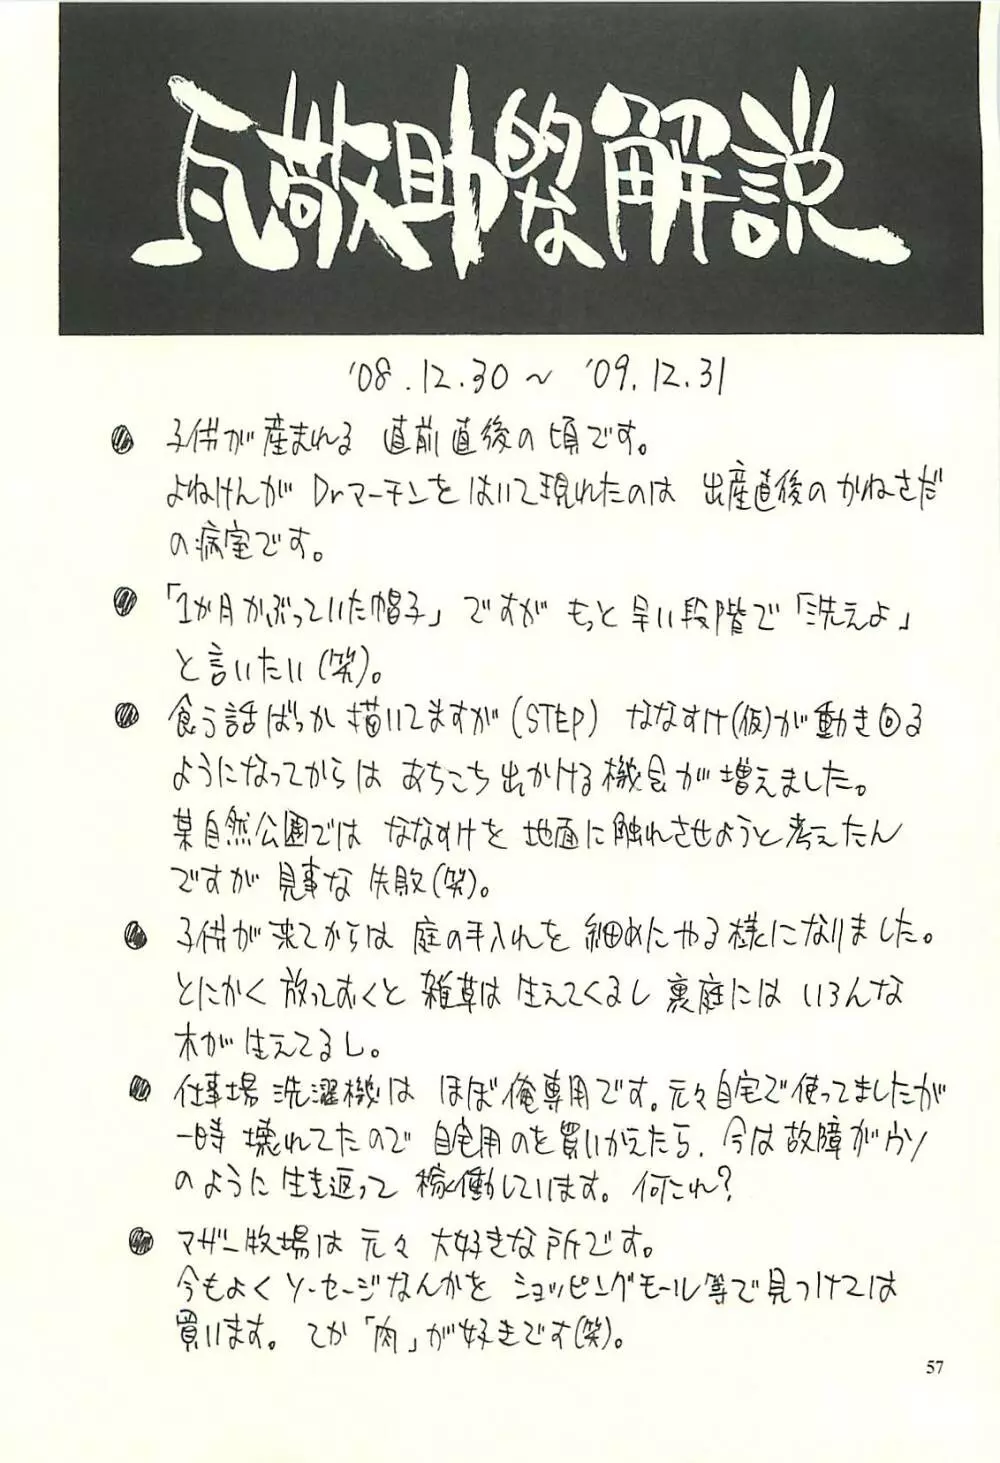 瓦敬助的な解説
'08.12.30〜 '09.12.31
● 子供が産まれる 直前直後の頃です。
よねけんが Drマーチンをはいて現れたのは 出産直後のかねさだ
の病室です。
● 「1か月かぶっていた帽子」ですが もっと早い段階で「洗えよ」
と言いたい(笑)。
● 食う話ばっか描いてますが(STEP) ななすけ(仮)が動き回る
ようになってからは あちこち出かける機会が増えました。
某自然公園では ななすけを 地面に触れさせようと考えたん
ですが 見事な失敗(笑)。
● 子供が来てからは 庭の手入れを 細めにやる様になりました。
とにかく 放っておくと 雑草は 生えてくるし 裏庭には いろんな
木が生えてるし。
● 仕事場 洗濯機は ほぼ俺専用です。元々自宅で使ってましたが
一時 壊れてたので 自宅用のを買いかえたら、今は故障がウソ
のように生き返って 稼働しています。何これ?
● マザー牧場は 元々 大好きな所です。
今もよく ソーセージなんかを ショッピングモール等で見つけては
買います。 てか「肉」が好きです(笑)。
57